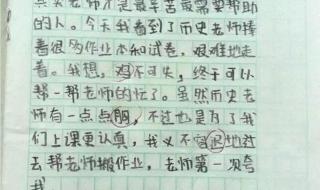 其实老师才是最辛苦最需要帮助
的人。今天我看到了历史老师捧
着很多作业本和试卷，艰难地走
着。我想，鸡不可失，终于可以
帮一帮老师的忙了。虽然历史老
师有一点点朋，不过也是为了我
们上课更认真，我义不容迟地过
去帮老师搬作业，老师第一次夸
我